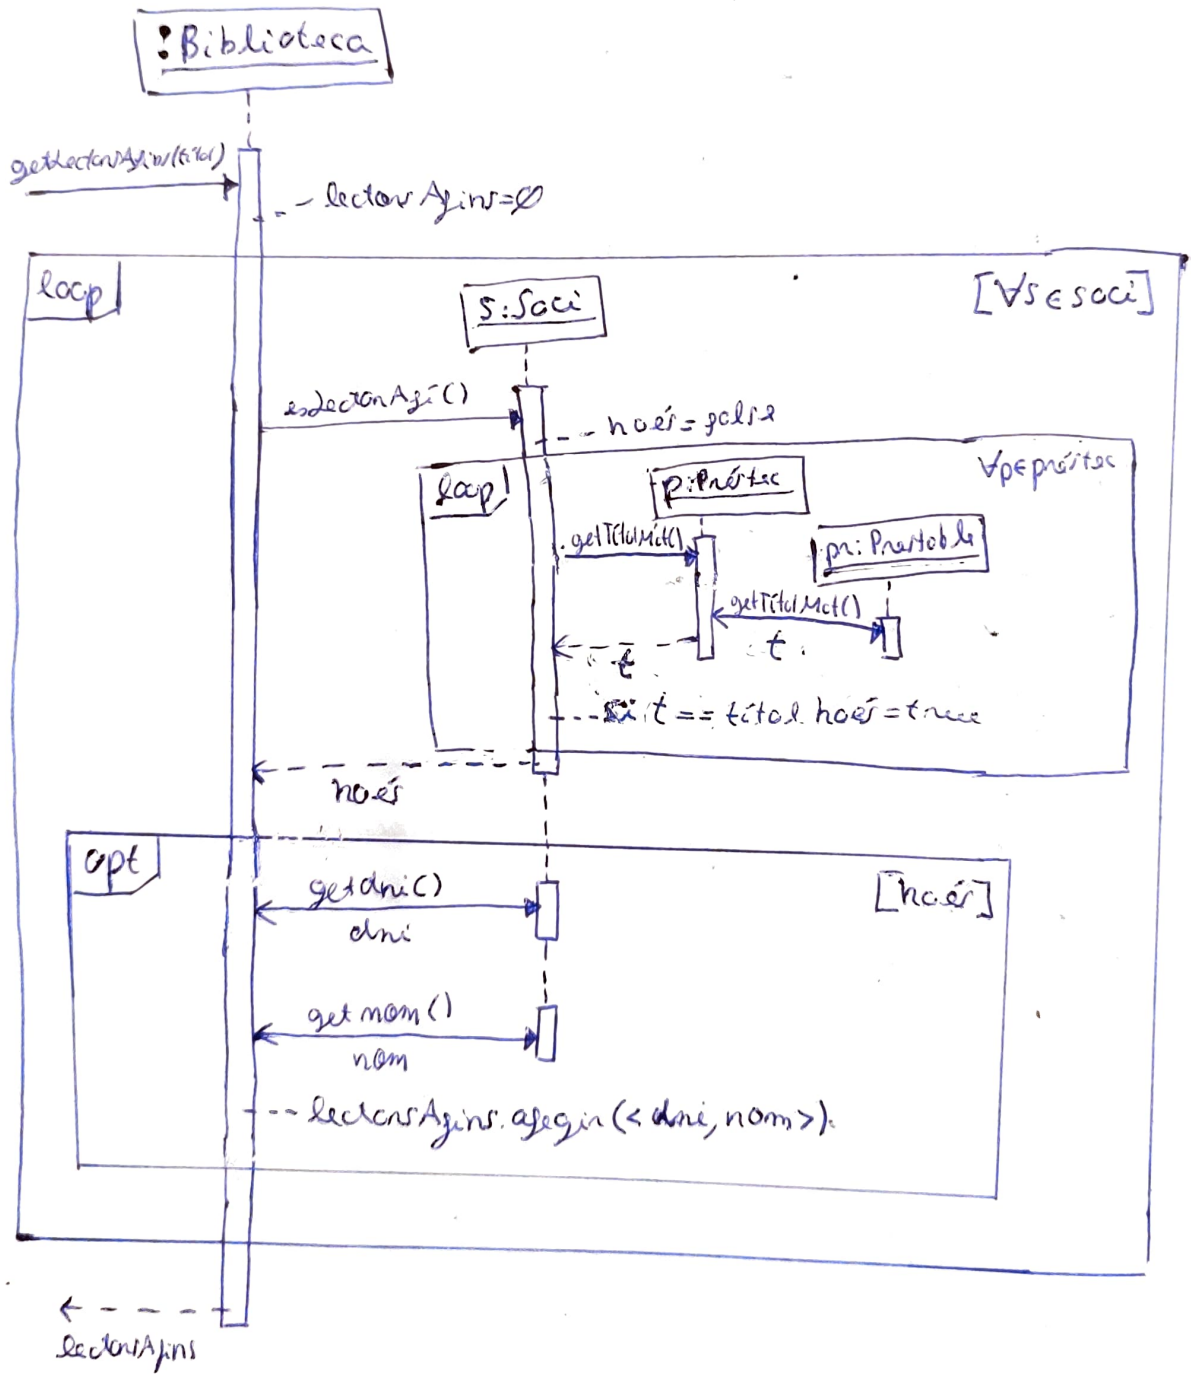 :Biblioteca
getLectorsAfins(títol)
lectorsAfins=∅
loop
[∀s∈soci]
s:Soci
esLectorAfí()
hoés=false
loop
∀p∈préstec
p:Préstec
getTítolMat()
pr:Prestable
getTítolMat()
t
t
si t == títol hoés=true
hoés
opt
[hoés]
getdni()
dni
getnom()
nom
lectorsAfins.afegir(<dni, nom>)
lectorsAfins